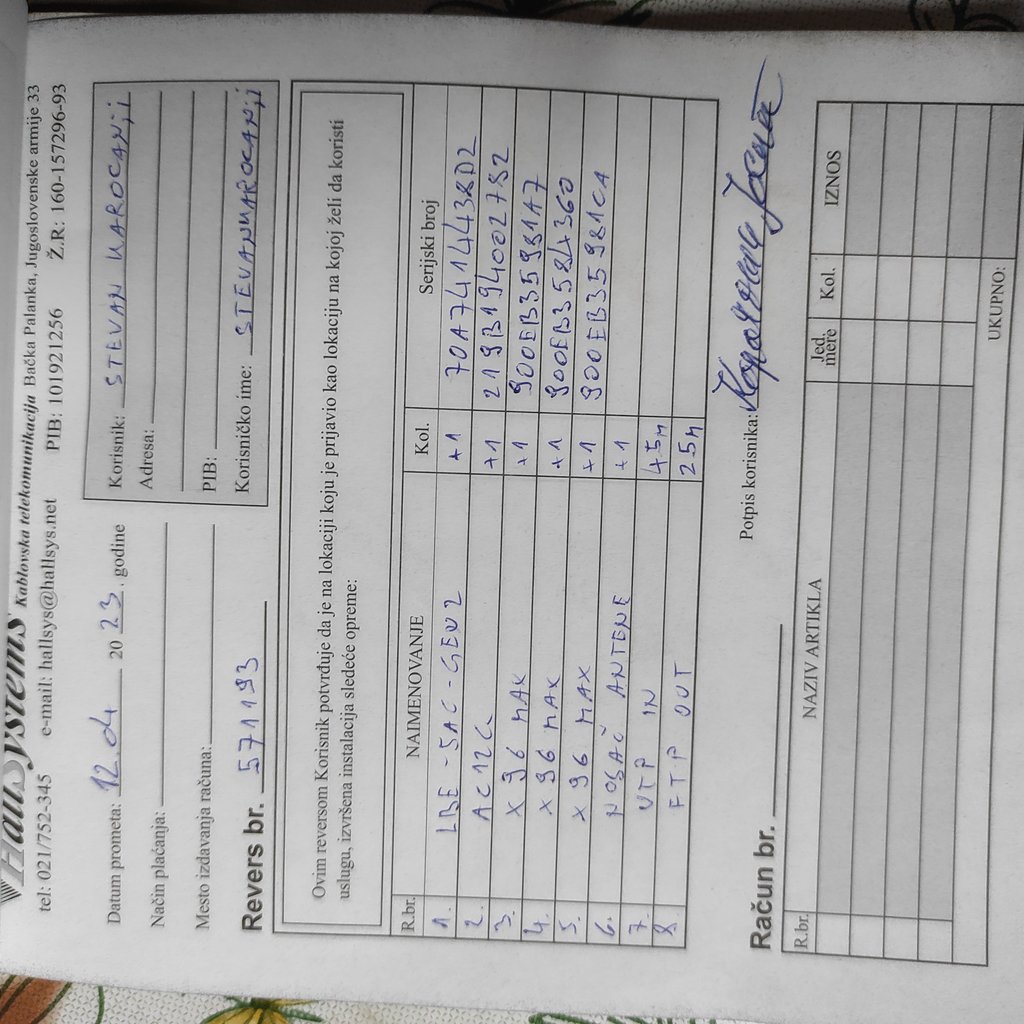 HallSystems Kablovska telekomunikacija Bačka Palanka, Jugoslovenske armije 33
tel: 021/752-345 e-mail: hallsys@hallsys.net PIB: 101921256 Ž.R: 160-157296-93
Datum prometa: 12.04 20 23. godine
Način plaćanja:
Mesto izdavanja računa:
Revers br. 571193
Korisnik: STEVAN MAROCANJI
Adresa:
PIB:
Korisničko ime: STEVANMAROCANJI
Ovim reversom Korisnik potvrđuje da je na lokaciji koju je prijavio kao lokaciju na kojoj želi da koristi
uslugu, izvršena instalacija sledeće opreme:
R.br. NAIMENOVANJE Kol. Serijski broj
1. LBE-5AC-GEN2 +1 70A7414438D2
2. AC12G +1 219B194002782
3. X96 MAX +1 900EB35981A7
4. X96 MAX +1 900EB3584360
5. X96 MAX +1 900EB35981CA
6. NOSAČ ANTENE +1
7. UTP IN 45m
8. FTP OUT 25m
Potpis korisnika:
Račun br.
R.br. NAZIV ARTIKLA Jed. mere Kol. IZNOS
UKUPNO: